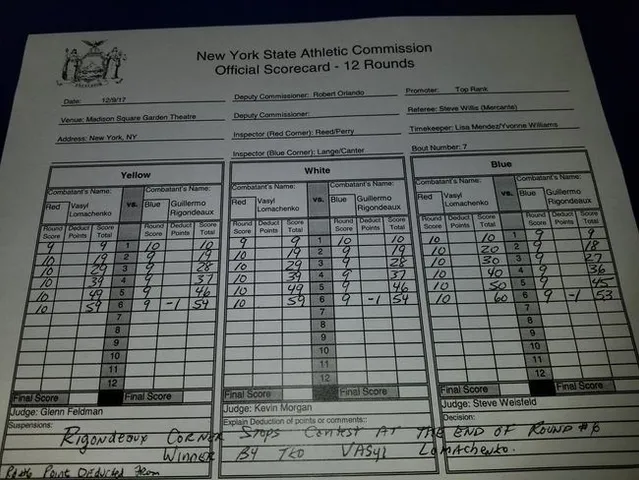 New York State Athletic Commission
Official Scorecard - 12 Rounds
Date: 12/9/17 Deputy Commissioner: Robert Orlando Promoter: Top Rank
Venue: Madison Square Garden Theatre Deputy Commissioner: Referee: Steve Willis (Mercante)
Address: New York, NY Inspector (Red Corner): Reed/Perry Timekeeper: Lisa Mendez/Yvonne Williams
Inspector (Blue Corner): Lange/Canter Bout Number: 7
Yellow White Blue
Combatant's Name: Combatant's Name: Combatant's Name: Combatant's Name: Combatant's Name: Combatant's Name:
Red Vasyl Lomachenko vs. Blue Guillermo Rigondeaux Red Vasyl Lomachenko vs. Blue Guillermo Rigondeaux Red Vasyl Lomachenko vs. Blue Guillermo Rigondeaux
Round Score Deduct Points Score Total Round Score Deduct Points Score Total Round Score Deduct Points Score Total Round Score Deduct Points Score Total Round Score Deduct Points Score Total Round Score Deduct Points Score Total
9 9 1 10 10 9 9 1 10 10 10 10 1 9 9
10 19 2 9 19 10 19 2 9 19 10 20 2 9 18
10 29 3 9 28 10 29 3 9 28 10 30 3 9 27
10 39 4 9 37 10 39 4 9 37 10 40 4 9 36
10 49 5 9 46 10 49 5 9 46 10 50 5 9 45
10 59 6 9 -1 54 10 59 6 9 -1 54 10 60 6 9 -1 53
7 7 7
8 8 8
9 9 9
10 10 10
11 11 11
12 12 12
Final Score Final Score Final Score Final Score Final Score Final Score
Judge: Glenn Feldman Judge: Kevin Morgan Judge: Steve Weisfeld
Suspensions: Explain Deduction of points or comments: Decision:
Rigondeaux Corner Stops Contest At The END OF Round #6
Winner By TKO VASyl Lomachenko.
Point Deducted From